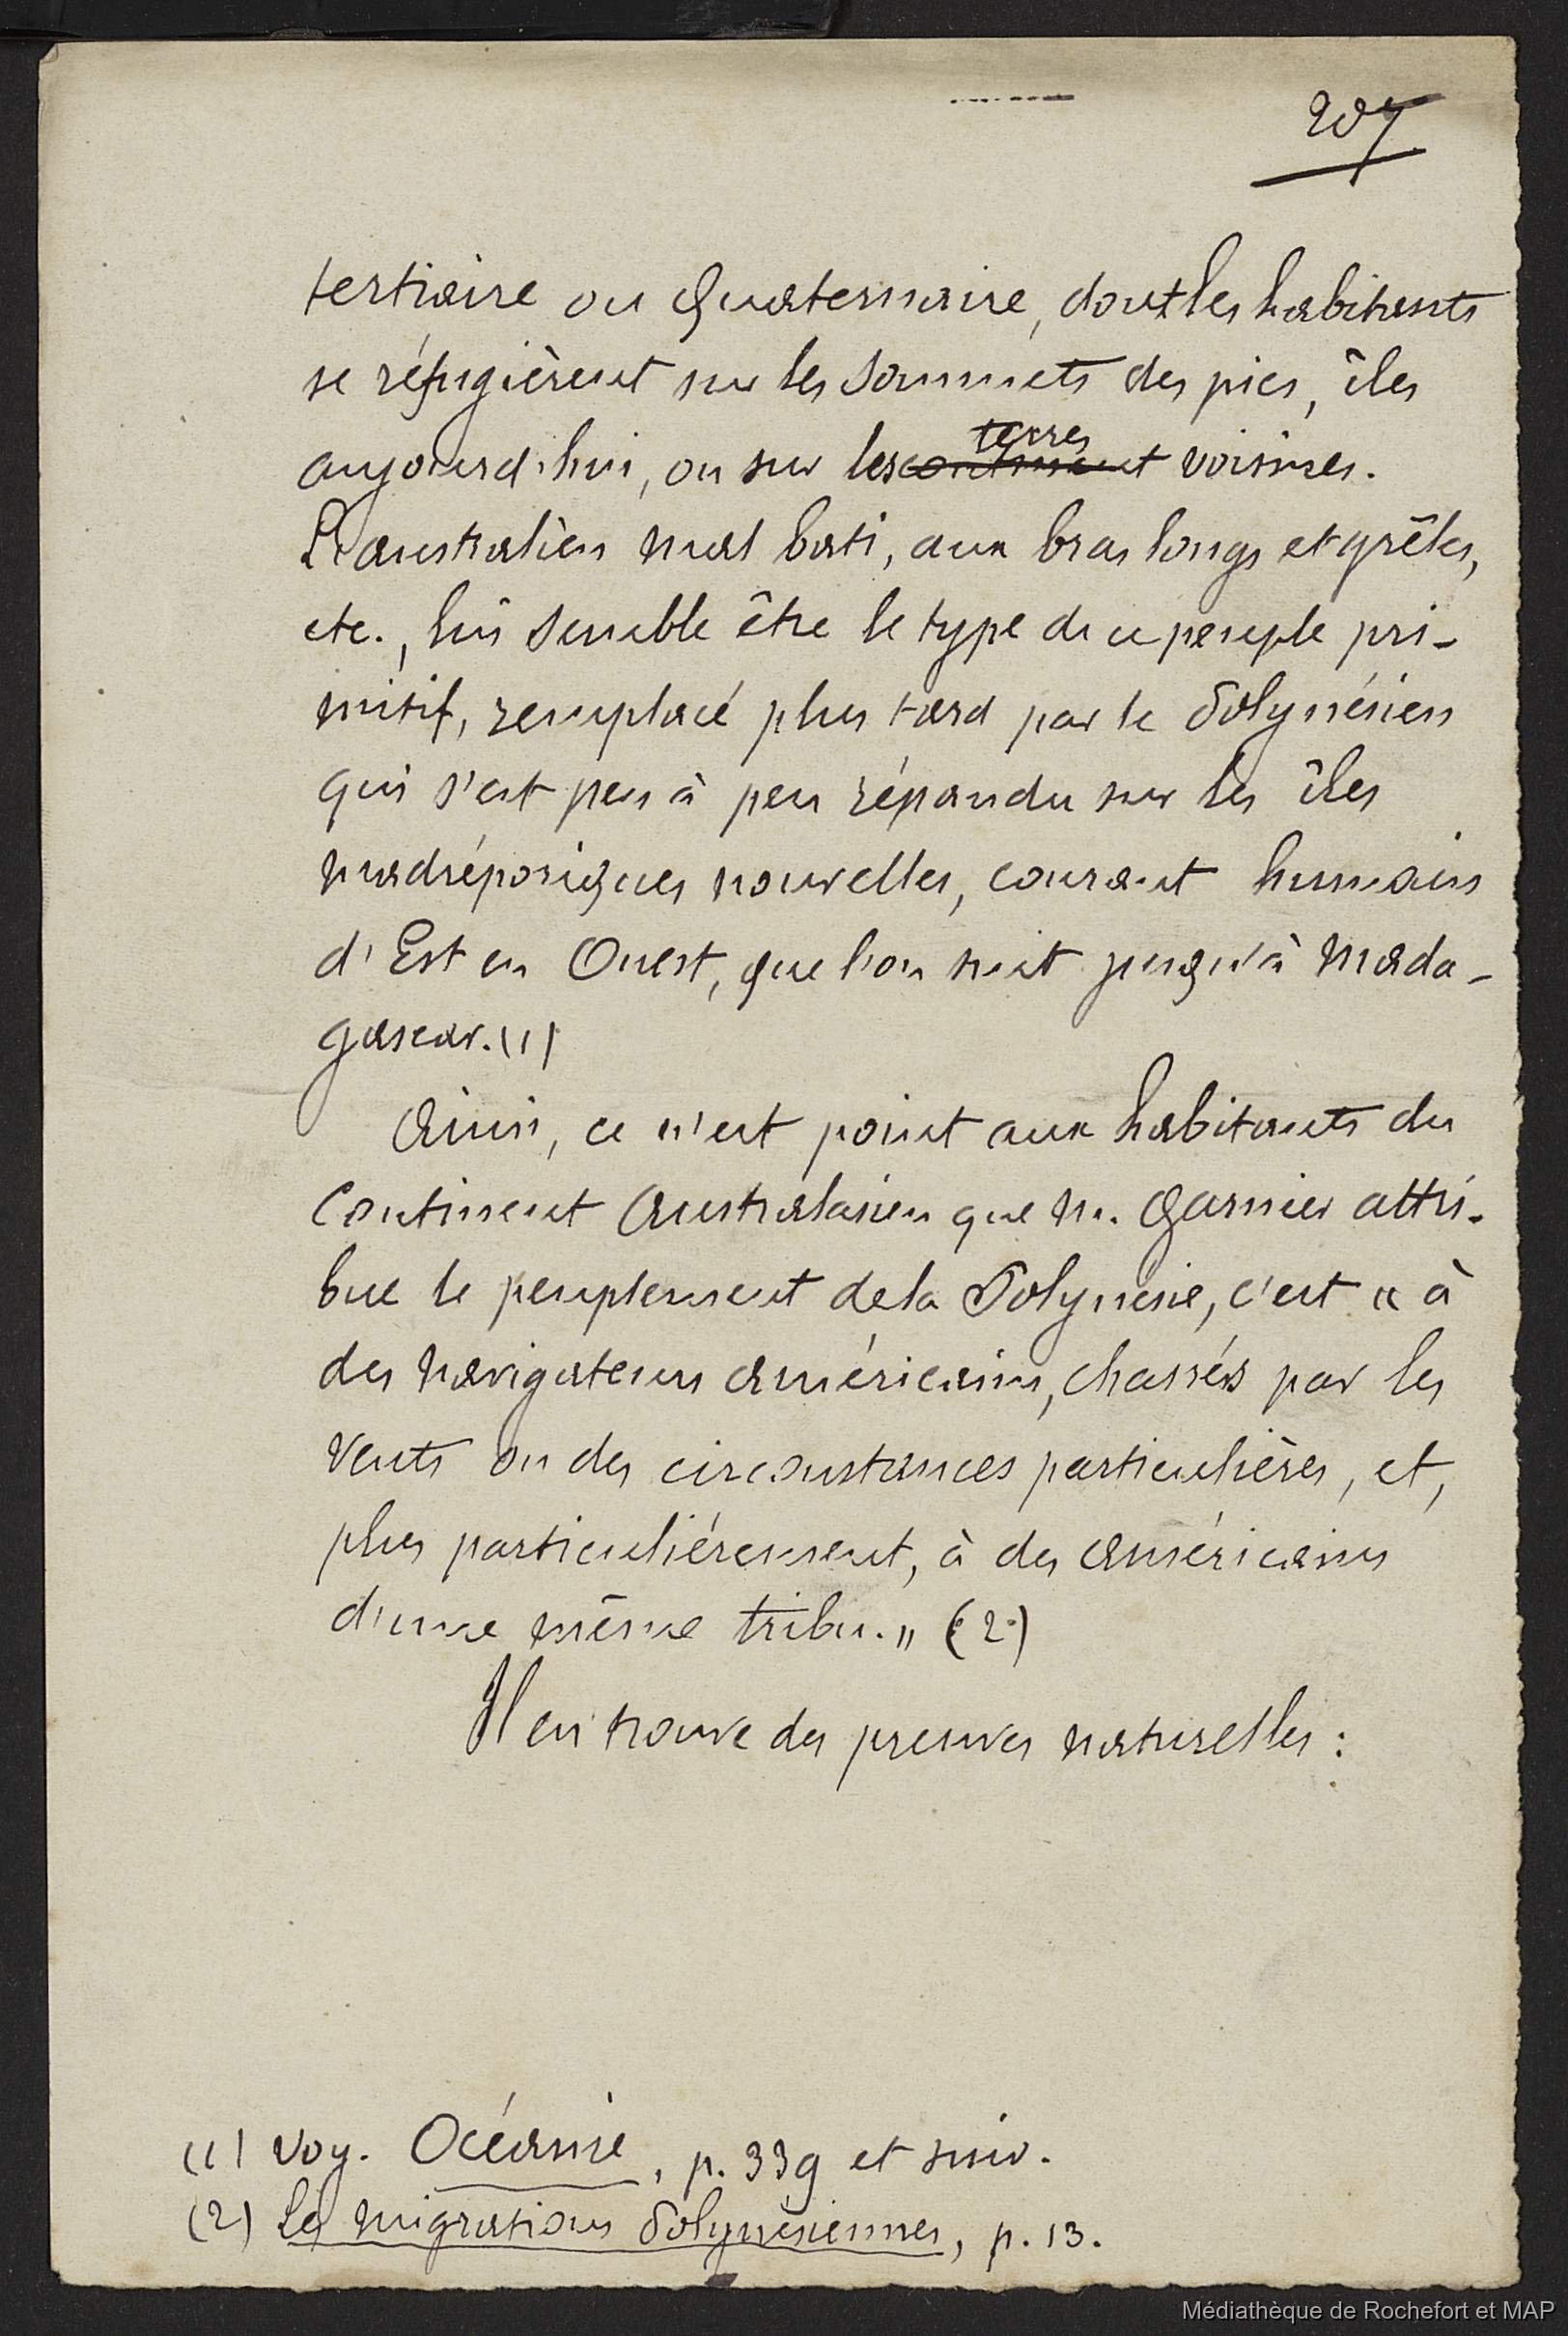 207
tertiaire ou quaternaire, dont les habitants
se réfugièrent sur les sommets des pics, îles
terres
aujourd'hui, ou sur les continent voisines.
L'australien mal bati, aux bras longs et grêles,
etc., lui semble être le type de ce peuple pri-
mitif, remplacé plus tard par le Polynésien
qui s'est peu à peu répandu sur les îles
madréporiques nouvelles, courant humain
d'Est en Ouest, que l'on suit jusqu'à Mada-
gascar. (1)
Ainsi, ce n'est point aux habitants du
Continent Australasien que M. Garnier attri-
bue le peuplement de la Polynésie, c'est « à
des navigateurs américains, chassés par les
vents ou des circonstances particulières, et,
plus particuliérement, à des américains
d'une même tribu. » (2)
Il en trouve des preuves naturelles :
(1) Voy. Océanie, p. 339 et suiv.
(2) Les migrations Polynésiennes, p. 13.
Médiathèque de Rochefort et MAP